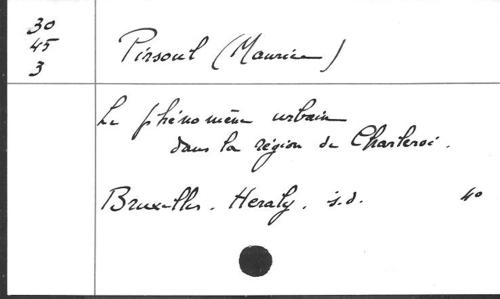 30
45
3
Pirsoul (Maurice)
Le phénomène urbain
dans la région de Charleroi.
Bruxelles. Heraly. s.d. 4°